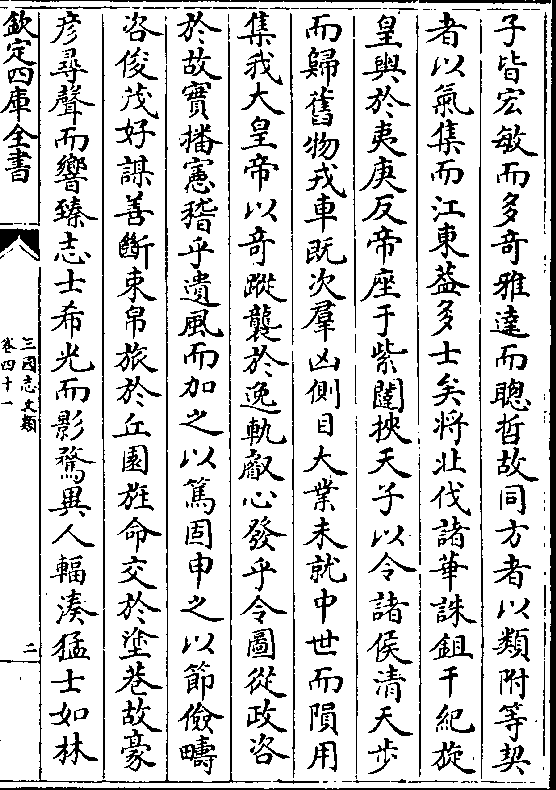 子皆宏敏而多奇雅達而聰哲故同方者以類附等契
者以氣集而江東葢多士矣將壯伐諸華誅鉏干紀旋
皇輿於夷庚反帝座于紫闥挾天子以令諸侯清天步
而歸舊物戎車既次羣凶側目大業未就中世而隕用
集我大皇帝以奇蹤襲於逸軌叡心發乎令圖從政咨
於故實播憲稽乎遺風而加之以篤固申之以節儉疇
咨俊茂好謀善斷束帛旅於丘園旌命交於塗巷故豪
彦尋聲而響臻志士希光而影騖異人輻湊猛士如林
欽定四庫全書
三國志文類
卷四十一
二